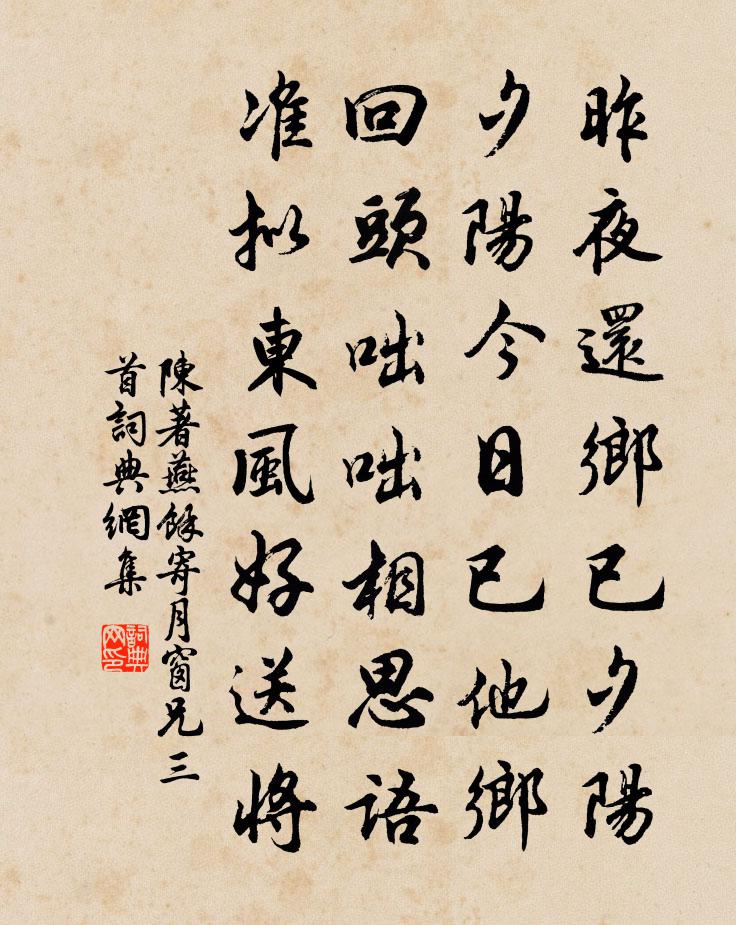 昨夜還鄉已夕陽
夕陽今日已他鄉
回頭咄咄相思語
准拟東風好送將
陳著燕餘寄月窗兄三
首詞典網集
詞典
网印